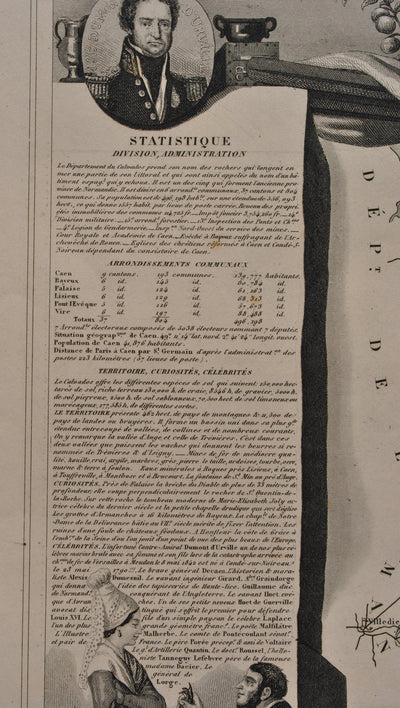 STATISTIQUE
DIVISION, ADMINISTRATION
Le Département du Calvados prend son nom des rochers qui longent en
mer une partie de son littoral et qui sont ainsi appelés du nom d'un bâ-
timent espagl. qui y échoua. Il est un des cinq qui forment l'ancienne pro-
vince de Normandie. Il est divisé en 6 arrondts. communaux, 37 cantons et 804
communes. Sa population est de 496,198 habts. sur une étendue de 556,093
hect., ce qui donne 1657 habit. par lieue de poste carrée. Revenu des propri-
étés immobilières des communes
Division militaire. arrondt. forestier. Inspection des Ponts et Chées.
Légion de Gendarmerie. Inspon. Nord-Ouest du service des mines.
Cour Royale et Académie de Caen. Evêché à Bayeux suffragant de l'Ar-
chevêché de Rouen. Eglises des chrétiens réformés à Caen et Condé-S-
Noireau dépendant du consistoire de Caen.
ARRONDISSEMENTS COMMUNAUX
Caen 9 cantons. 193 communes. 139,777 habitants.
Bayeux 6 id. 145 id. 80,784 id.
Falaise 5 id. 124 id. 61,263 id.
Lisieux 6 id. 129 id. 68,313 id.
Pont l'Evêque 5 id. 116 id. 57,673 id.
Vire 6 id. 197 id. 88,488 id.
Totaux 37 804 496,298
7 Arrondts. électoraux composés de 3038 électeurs nommant 7 députés.
Situation géograpque. de Caen. 49° 11' 14" lat. nord. 2° 41' 24" longit. ouest.
Population de Caen 41,876 habitants.
Distance de Paris à Caen par St. Germain d'après l'administrat.on des
postes 223 kilomètres (57 lieues de poste).
TERRITOIRE, CURIOSITÉS, CÉLÉBRITÉS
Le Calvados offre les différentes espèces de sol qui suivent: 250,000 hec-
tares de sol, riche terreau 230,000 h. de craie, h. de gravier, 3000 h.
de sol pierreux, 2100 h. de sol sablonneux, 70,300 hect. de sol limoneux ou
marécageux, h. de différentes sortes.
LE TERRITOIRE présente 462 hect. de pays de montagnes & 11,500 de
pays de landes ou bruyères. Il forme un bassin uni dans sa plus gde.
étendue entrecoupé de vallées, de collines et de nombreux courants.
On y remarque la vallée d'Auge et celle de Trenières. C'est dans ces
deux vallées que paissent les vaches qui donnent les beurres si re-
nommés de Trénières & d'Isigny. Mines de fer de médiocre qua-
lité, houille, grès, pierre de taille, ardoises, tourbe,
marne & terre à foulon. Eaux minérales à Roques près Lisieux, à Caen,
à Touffreville, à Monthosé et à Brucourt. La fontaine de St. Méu an pré d'Auge.
CURIOSITÉS. Près de Falaise la brèche du Diable de plus de 33 mètres de
profondeur elle coupe perpendiculairement le rocher de St. Quentin-de-
la-Roche. Sur cette roche le tombeau moderne de Marie-Elisabeth Joly ac-
trice célèbre du dernier siècle et la petite chapelle druidique qui sert d'église
Les grottes d'Ernanches à 16 kilomètres de Bayeux. La chaple. de Notre-
Dame de la Délivrance bâtie au VIIe siècle mérite de fixer l'attention. Les
ruines d'une foule de châteaux féodaux. A Honfleur la côte de Grâce à
l'embre. de la Seine d'ou l'on jouit d'un point de vue des plus beaux de l'Europe.
CÉLÉBRITÉS. L'infortuné Contre-Amiral Dumont d'Urville un de nos plus cé-
lèbres marins brulé avec sa femme et son fils lors de la catastrophe arrivée au
chin de fer de Versailles à Meudon le 8 mai 1842 est né à Condé-sur-Noireau
le 23 mai 1790. Le brave général Decaen. L'historien & mora-
liste Alexis Dumesnil. Le savant ingénieur Girard. A.me Graindorge
qui donna l'idée des tapisseries de Haute-lice. Guillaume duc
de Normandie. conquérant de l'Angleterre. Le savant Huet évê-
que d'Avranches. Enfin de ses petits neveux Huet de Guerville
avocat distingué qui s'offrit le premier pour défendre
Louis XVI. Le fils d'un simple paysan le célèbre Laplace
l'un des plus grands géomètre franc. Le poète Malfilâtre
L'Illustre Malherbe. Le comte de Pontecoulant sénatr.
et pair de France. Le père Porée précept. de Voltaire
Le gl. d'Artillerie Quantin. Le doct. Roussel, l'hellé-
niste Tanneguy Lefebvre père de la fameuse
madame Dacier. Le
général de
Lorge.
DÉPT. DE
MAN
Villedieu